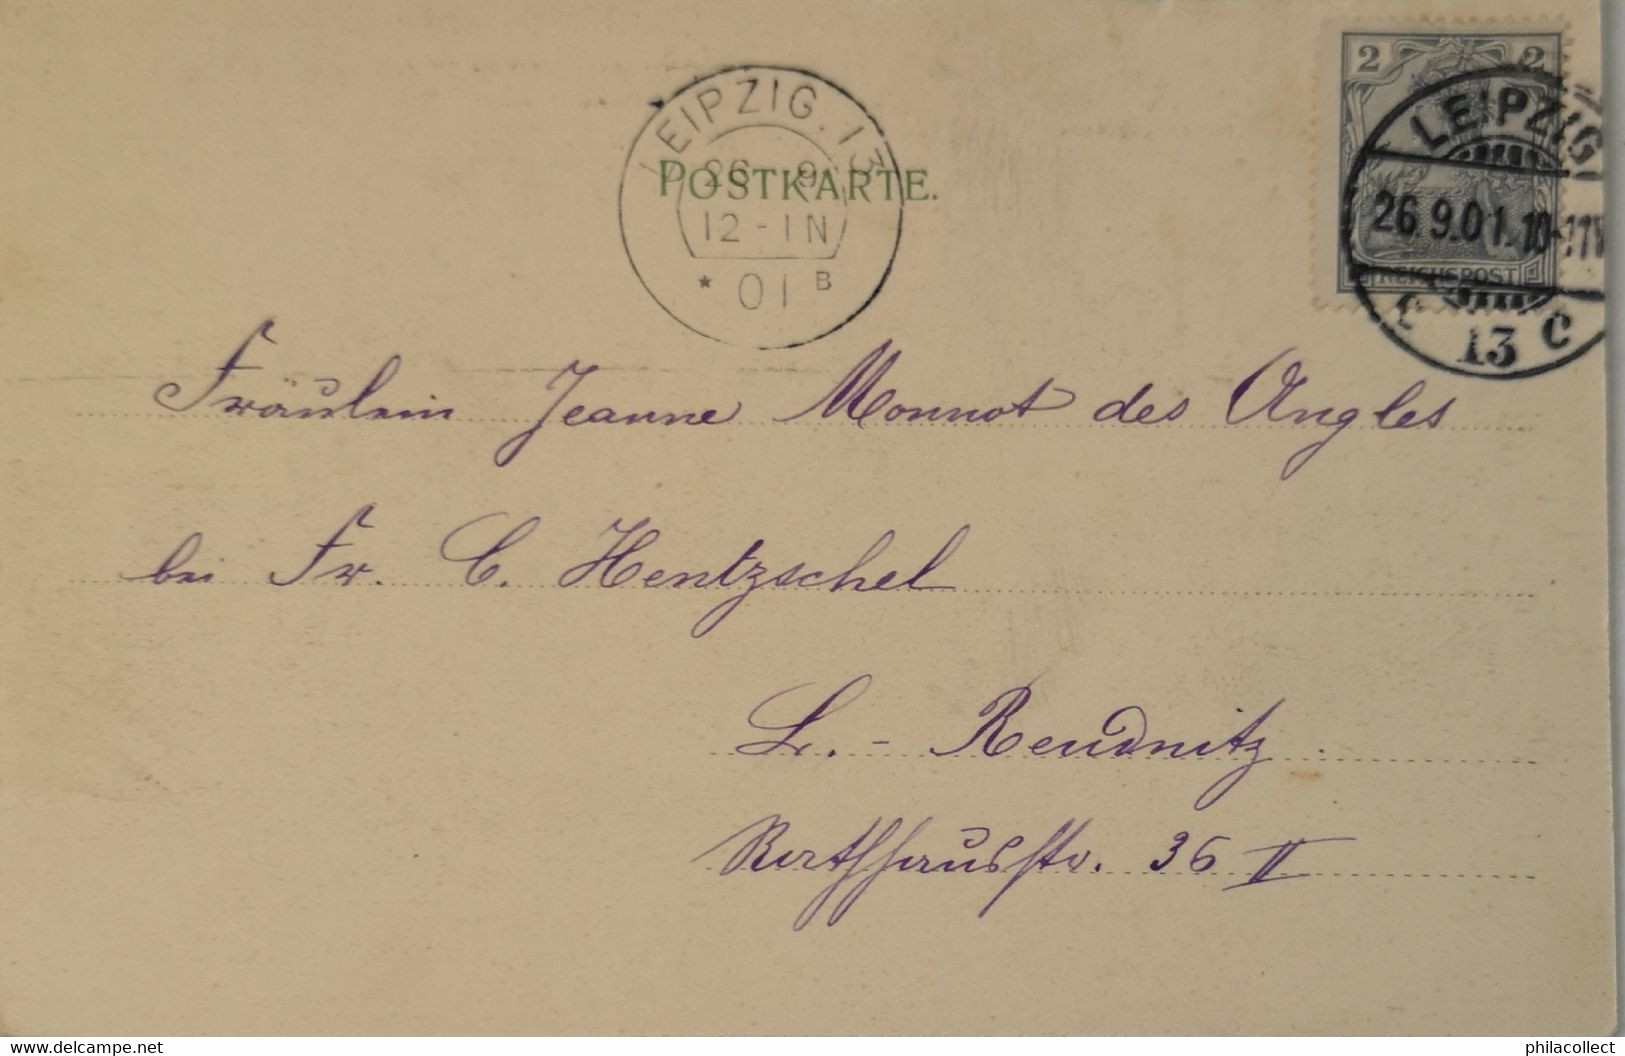 LEIPZIG. 13
26 9
12-1N
* 01 B
POSTKARTE.
2 2
REICHSPOST
LEIPZIG
26.9.01.10-11V
13 c
Fräulein Jeanne Monnot des Angles
bei Fr. C. Hentzschel
L.- Reudnitz
Rathhausstr. 36 II
www.delcampe.net
philacollect